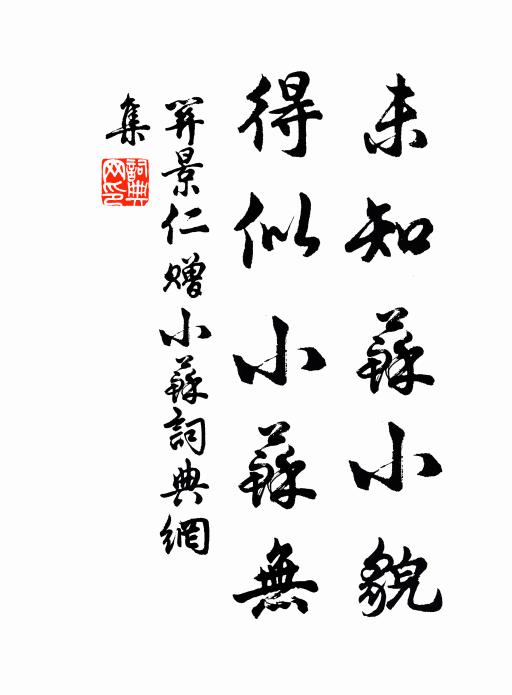 未知蘇小貌
得似小蘇無
羿景仁贈小蘇詞典網
集
詞典
网印